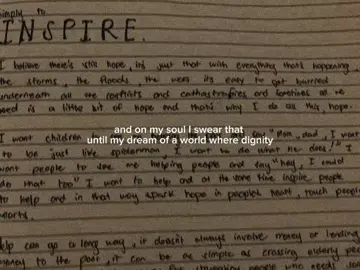 Simply to
INSPIRE.
I believe there's still hope, it's just that with everything that's happening,
the storms, the floods, the wars it's easy to get burried
underneath all the conflicts and cathastrofires and sometimes all we
need is a little bit of hope and that's why I do all this, hope.
I want children to say "Mom, dad, I want
and on my soul I swear that
to be just like spiderman I want to do what he does!" I
until my dream of a world where dignity
want people to see me helping people and say "hey, I could
do that too" I want to help and at the same time inspire people
to help and in that way spark hope in people's heart, touch people's
hearts.
help can go a long way, it doesn't always involve money or lending
money to the poor, it can be as simple as crossing elderly people
people who needs